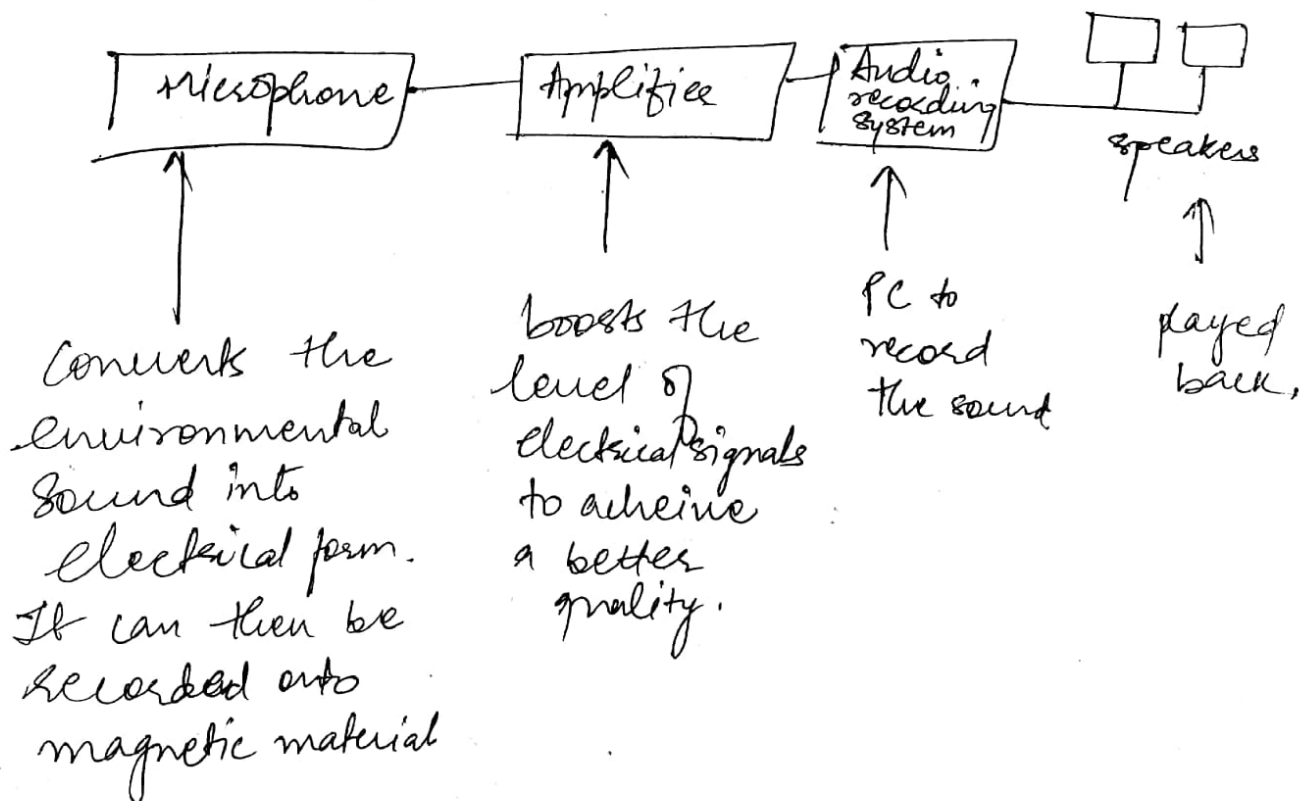 Microphone
Amplifier
Audio.
recording
system
speakers
Converts the
environmental
sound into
electrical form.
It can then be
recorded onto
magnetic material
boosts the
level of
electrical signals
to acheive
a better
quality.
PC to
record
the sound
played
back.